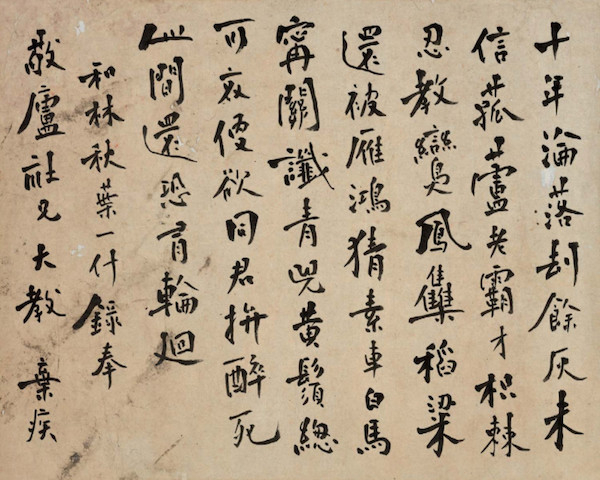 十年淪落刧餘灰未
信菰蘆老霸才枳棘
忍教鸞鳳集稻粱
還被雁鴻猜素車白馬
寧關讖青兕黄鬚總
可哀便欲同君拚醉死
此間還恐有輪迴
和林秋葉一什錄奉
敬廬社兄大教 棄疾